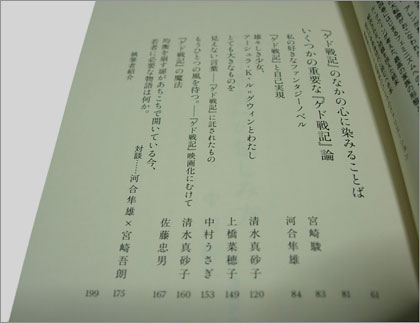 『ゲド戦記』のなかの心に染みることば 61
いくつかの重要な『ゲド戦記』論 81
私の好きなファンタジーノベル 宮崎駿 83
『ゲド戦記』と自己実現 河合隼雄 84
雄々しき少女、
アーシュラ・K・ル・グウィンとわたし 清水真砂子 120
とても大きなものを 上橋菜穂子 149
見えない言葉――『ゲド戦記』に託されたもの 中村うさぎ 153
もうひとつの風を待つ。――『ゲド戦記』映画化にむけて 清水真砂子 160
『ゲド戦記』の魔法 佐藤忠男 167
均衡を崩す扉があちこちで開いている今、
若者に必要な物語は何か。 対談……河合隼雄×宮崎吾朗 175
執筆者紹介 199